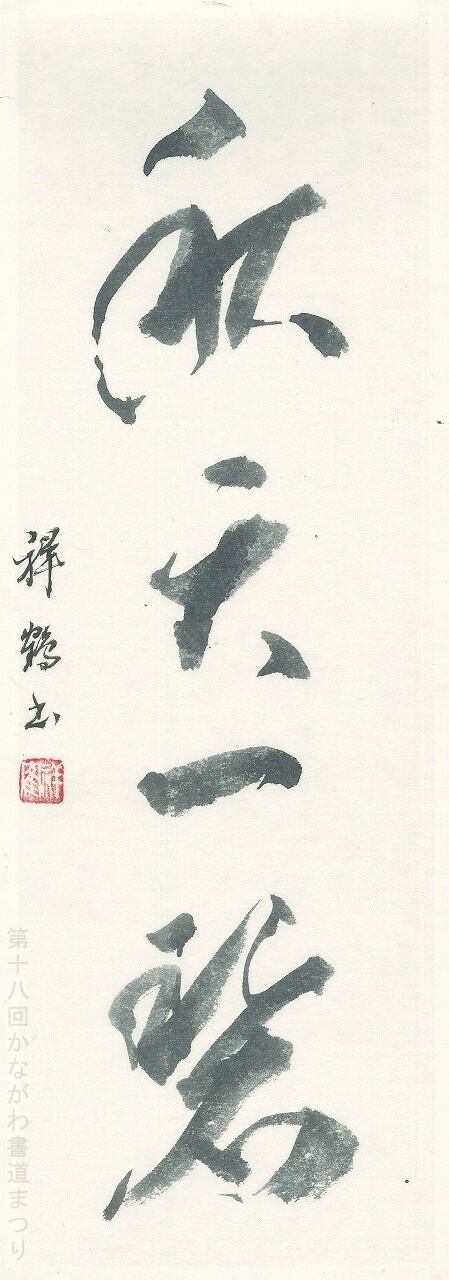 秋天一碧
祥鶴书
第十八回かながわ書道まつり